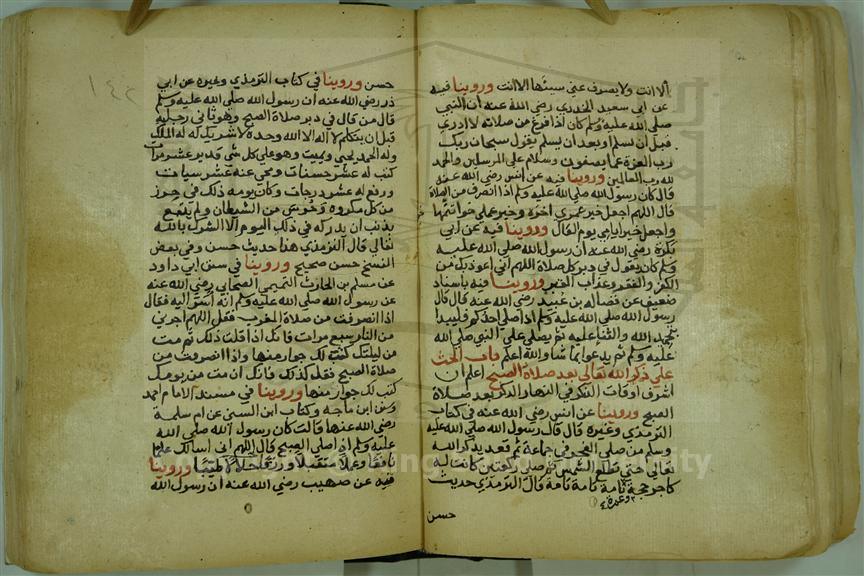 ألا انت ولا يصرف عني سيئها الا انت وروينا فيه
عن ابي سعيد الخدري رضي الله عنه أن النبي
صلي الله عليه وسلم كان اذا فرغ من صلاته لا ادري
قبل أن يسلم او بعد أن يسلم يقول سبحان ربك
رب العزة عما يصفون وسلام علي المرسلين والحمد
لله رب العالمين وروينا فيه عن انس رضي الله عنه
قال كان رسول الله صلي الله عليه وسلم اذا انصرف من الصلاة
قال اللهم اجعل خير عمري اخره وخير عملي خواتمه
واجعل خير ايامي يوم القاك وروينا فيه عن أبي
بكرة رضي الله عنه أن رسول الله صلي الله عليه
وسلم كان يقول في دبر كل صلاة اللهم اني اعوذ بك من
الكفر والفقر وعذاب القبر وروينا فيه باسناد
ضعيف عن فضاله بن عبيد رضي الله عنه قال قال
رسول الله صلي الله عليه وسلم اذا صلي احدكم فليبدأ
بتحميد الله والثنا عليه ثم يصلي علي النبي صلي الله
عليه وسلم ثم يدعو بما شا والله اعلم باب الحث
علي ذكر الله تعالي بعد صلاة الصبح اعلم أن
اشرف اوقات الذكر في النهار الذكر بعد صلاة
الصبح وروينا عن انس رضي الله عنه في كتاب
الترمذي وغيره قال قال رسول الله صلي الله عليه
وسلم من صلي الفجر في جماعة ثم قعد يذكر الله
تعالي حتي تطلع الشمس ثم صلي ركعتين كانت له
كاجر حجة وعمرة تامة تامة تامة قال الترمذي حديث
حسن
حسن وروينا في كتاب الترمذي وغيره عن ابي
ذر رضي الله عنه أن رسول الله صلي الله عليه وسلم
قال من قال في دبر صلاة الصبح وهو ثاني رجليه
قبل ان يتكلم لا اله الا الله وحده لا شريك له له الملك
وله الحمد يحيي ويميت وهو علي كل شي قدير عشر مرات
كتب له عشر حسنات ومحي عنه عشر سيات
ورفع له عشر درجات وكان يومه ذلك في حرز
من كل مكروه وحرس من الشيطان ولم ينبغ
بذنب ان يدركه في ذلك اليوم الا الشرك بالله
تعالي قال الترمذي هذا حديث حسن وفي بعض
النسخ حسن صحيح وروينا في سنن ابي داود
عن مسلم بن الحارث التميمي الصحابي رضي الله عنه
عن رسول الله صلي الله عليه وسلم انه أسر اليه فقال
اذا انصرفت من صلاة المغرب فقل اللهم أجرني
من النار سبع مرات فانك اذا قلت ذلك ثم مت
من ليلتك كتب لك جوار منها واذا انصرفت من
صلاة الصبح فقل كذلك فانك أن مت من يومك
كتب لك جوار منها وروينا في مسند الامام احمد
وسنن ابن ماجه وكتاب ابن السني عن ام سلمة
رضي الله عنها قالت كان رسول الله صلي الله
عليه وسلم اذا صلي الصبح قال اللهم اني اسالك علما
نافعا وعملا متقبلا ورزقا حلالا طيبا وروينا
فيه عن صهيب رضي الله عنه أن رسول الله